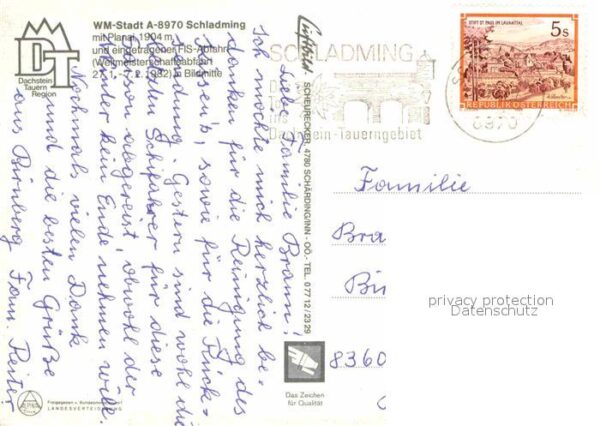 WM-Stadt A-8970 Schladming
mit Planai 1904 m,
und eingetragener FIS-Abfahrt
(Weltmeisterschaftsabfahrt
1982) in Bildmitte
Dachstein
Tauern
Region
Luftbild · SCHEURECKER, 4780 SCHÄRDING/INN - OÖ. · TEL. 07712/2329
SCHLADMING
Dachstein-Tauerngebiet
8970
STIFT ST. PAUL IM LAVANTTAL
5s
REPUBLIK ÖSTERREICH
Liebe Familie Braun!
Ich möchte mich herzlich be-
danken für die Reinigung des
sowie für die Rück-
sendung. Gestern sind wohl die
Schifahrer für diese
abgereist, obwohl der
Winter kein Ende nehmen will.
Nochmals vielen Dank
und die besten Grüße
aus Fam. Reiter
Familie
Bra
Bi
8360
privacy protection
Datenschutz
Das Zeichen
für Qualität
ALPINE
Freigegeben v. Bundesministerium f.
LANDESVERTEIDIGUNG